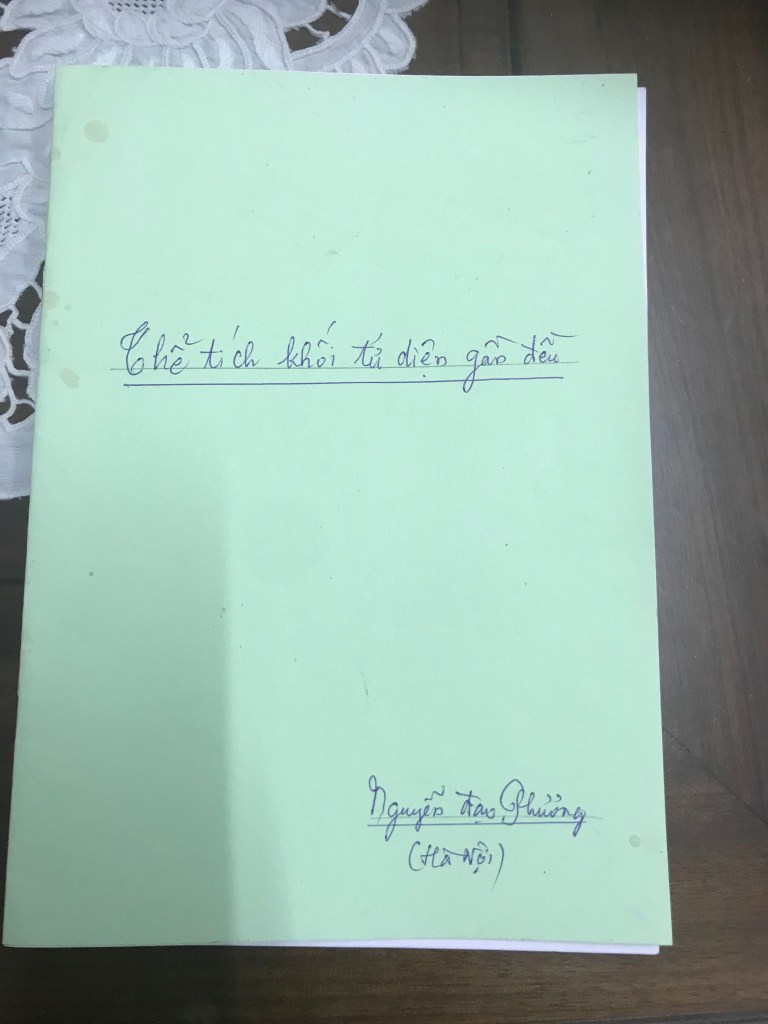 Thể tích khối tứ diện gần đều
Nguyễn Đạo Phương
(Hà Nội)